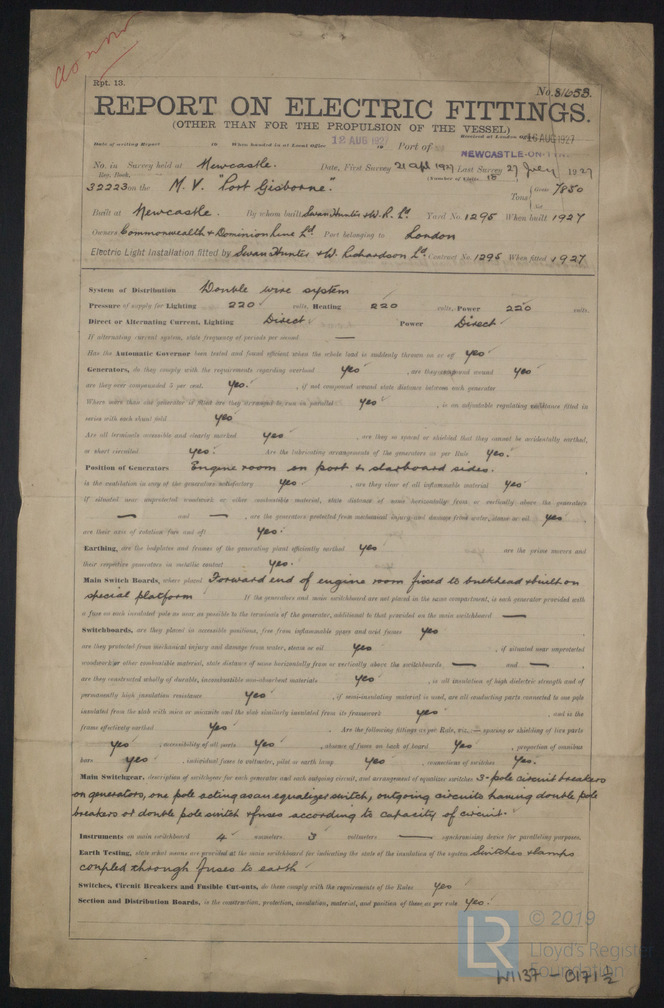 do now
Rpt. 13.
No. 81653.
REPORT ON ELECTRIC FITTINGS.
(OTHER THAN FOR THE PROPULSION OF THE VESSEL)
Received at London Office 16 AUG 1927
Date of writing Report 19 When handed in at Local Office 12 AUG 1927 19 Port of NEWCASTLE-ON-TYNE
No. in Survey held at Newcastle. Date, First Survey 21 Apl 1927 Last Survey 27 July 1927
Reg. Book. (Number of Visits 15
32223 on the M.V. "Port Gisborne". Tons { Gross 7850
Net
Built at Newcastle. By whom built Swan Hunter & W. R. Ld. Yard No. 1295 When built 1927
Owners Commonwealth & Dominion Line Ld. Port belonging to London
Electric Light Installation fitted by Swan Hunter & W. Richardson Ld. Contract No. 1295 When fitted 1927
System of Distribution Double wire system
Pressure of supply for Lighting 220 volts, Heating 220 volts, Power 220 volts.
Direct or Alternating Current, Lighting Direct Power Direct
If alternating current system, state frequency of periods per second —
Has the Automatic Governor been tested and found efficient when the whole load is suddenly thrown on or off yes
Generators, do they comply with the requirements regarding overload yes , are they compound wound yes
are they over compounded 5 per cent. yes. , if not compound wound state distance between each generator
Where more than one generator is fitted are they arranged to run in parallel yes , is an adjustable regulating resistance fitted in
series with each shunt field yes
Are all terminals accessible and clearly marked yes , are they so spaced or shielded that they cannot be accidentally earthed,
or short circuited yes. Are the lubricating arrangements of the generators as per Rule yes.
Position of Generators Engine room on port & starboard sides.
is the ventilation in way of the generators satisfactory yes , are they clear of all inflammable material yes
if situated near unprotected woodwork or other combustible material, state distance of same horizontally from or vertically above the generators
— and — , are the generators protected from mechanical injury and damage from water, steam or oil yes
are their axes of rotation fore and aft yes.
Earthing, are the bedplates and frames of the generating plant efficiently earthed yes are the prime movers and
their respective generators in metallic contact yes.
Main Switch Boards, where placed Forward end of engine room fixed to bulkhead & built on
special platform If the generators and main switchboard are not placed in the same compartment, is each generator provided with
a fuse on each insulated pole as near as possible to the terminals of the generator, additional to that provided on the main switchboard —
Switchboards, are they placed in accessible positions, free from inflammable gases and acid fumes yes ,
are they protected from mechanical injury and damage from water, steam or oil yes , if situated near unprotected
woodwork or other combustible material, state distance of same horizontally from or vertically above the switchboards — and — ,
are they constructed wholly of durable, incombustible non-absorbent materials yes , is all insulation of high dielectric strength and of
permanently high insulation resistance yes , if semi-insulating material is used, are all conducting parts connected to one pole
insulated from the slab with mica or micanite and the slab similarly insulated from its framework yes , and is the
frame effectively earthed yes Are the following fittings as per Rule, viz.:— spacing or shielding of live parts
yes , accessibility of all parts yes , absence of fuses on back of board yes , proportion of omnibus
bars yes , individual fuses to voltmeter, pilot or earth lamp yes , connections of switches yes.
Main Switchgear, description of switchgear for each generator and each outgoing circuit, and arrangement of equalizer switches 3-pole circuit breakers
on generators, one pole acting as an equalizer switch, outgoing circuits having double pole
breakers or double pole switch & fuses according to capacity of circuit.
Instruments on main switchboard 4 ammeters 3 voltmeters — synchronising device for paralleling purposes.
Earth Testing, state what means are provided at the main switchboard for indicating the state of the insulation of the system Switches & lamps
coupled through fuses to earth
Switches, Circuit Breakers and Fusible Cut-outs, do these comply with the requirements of the Rules yes
Section and Distribution Boards, is the construction, protection, insulation, material, and position of these as per rule yes.
LR
© 2019
Lloyd's Register
Foundation
W1137 - 0171½